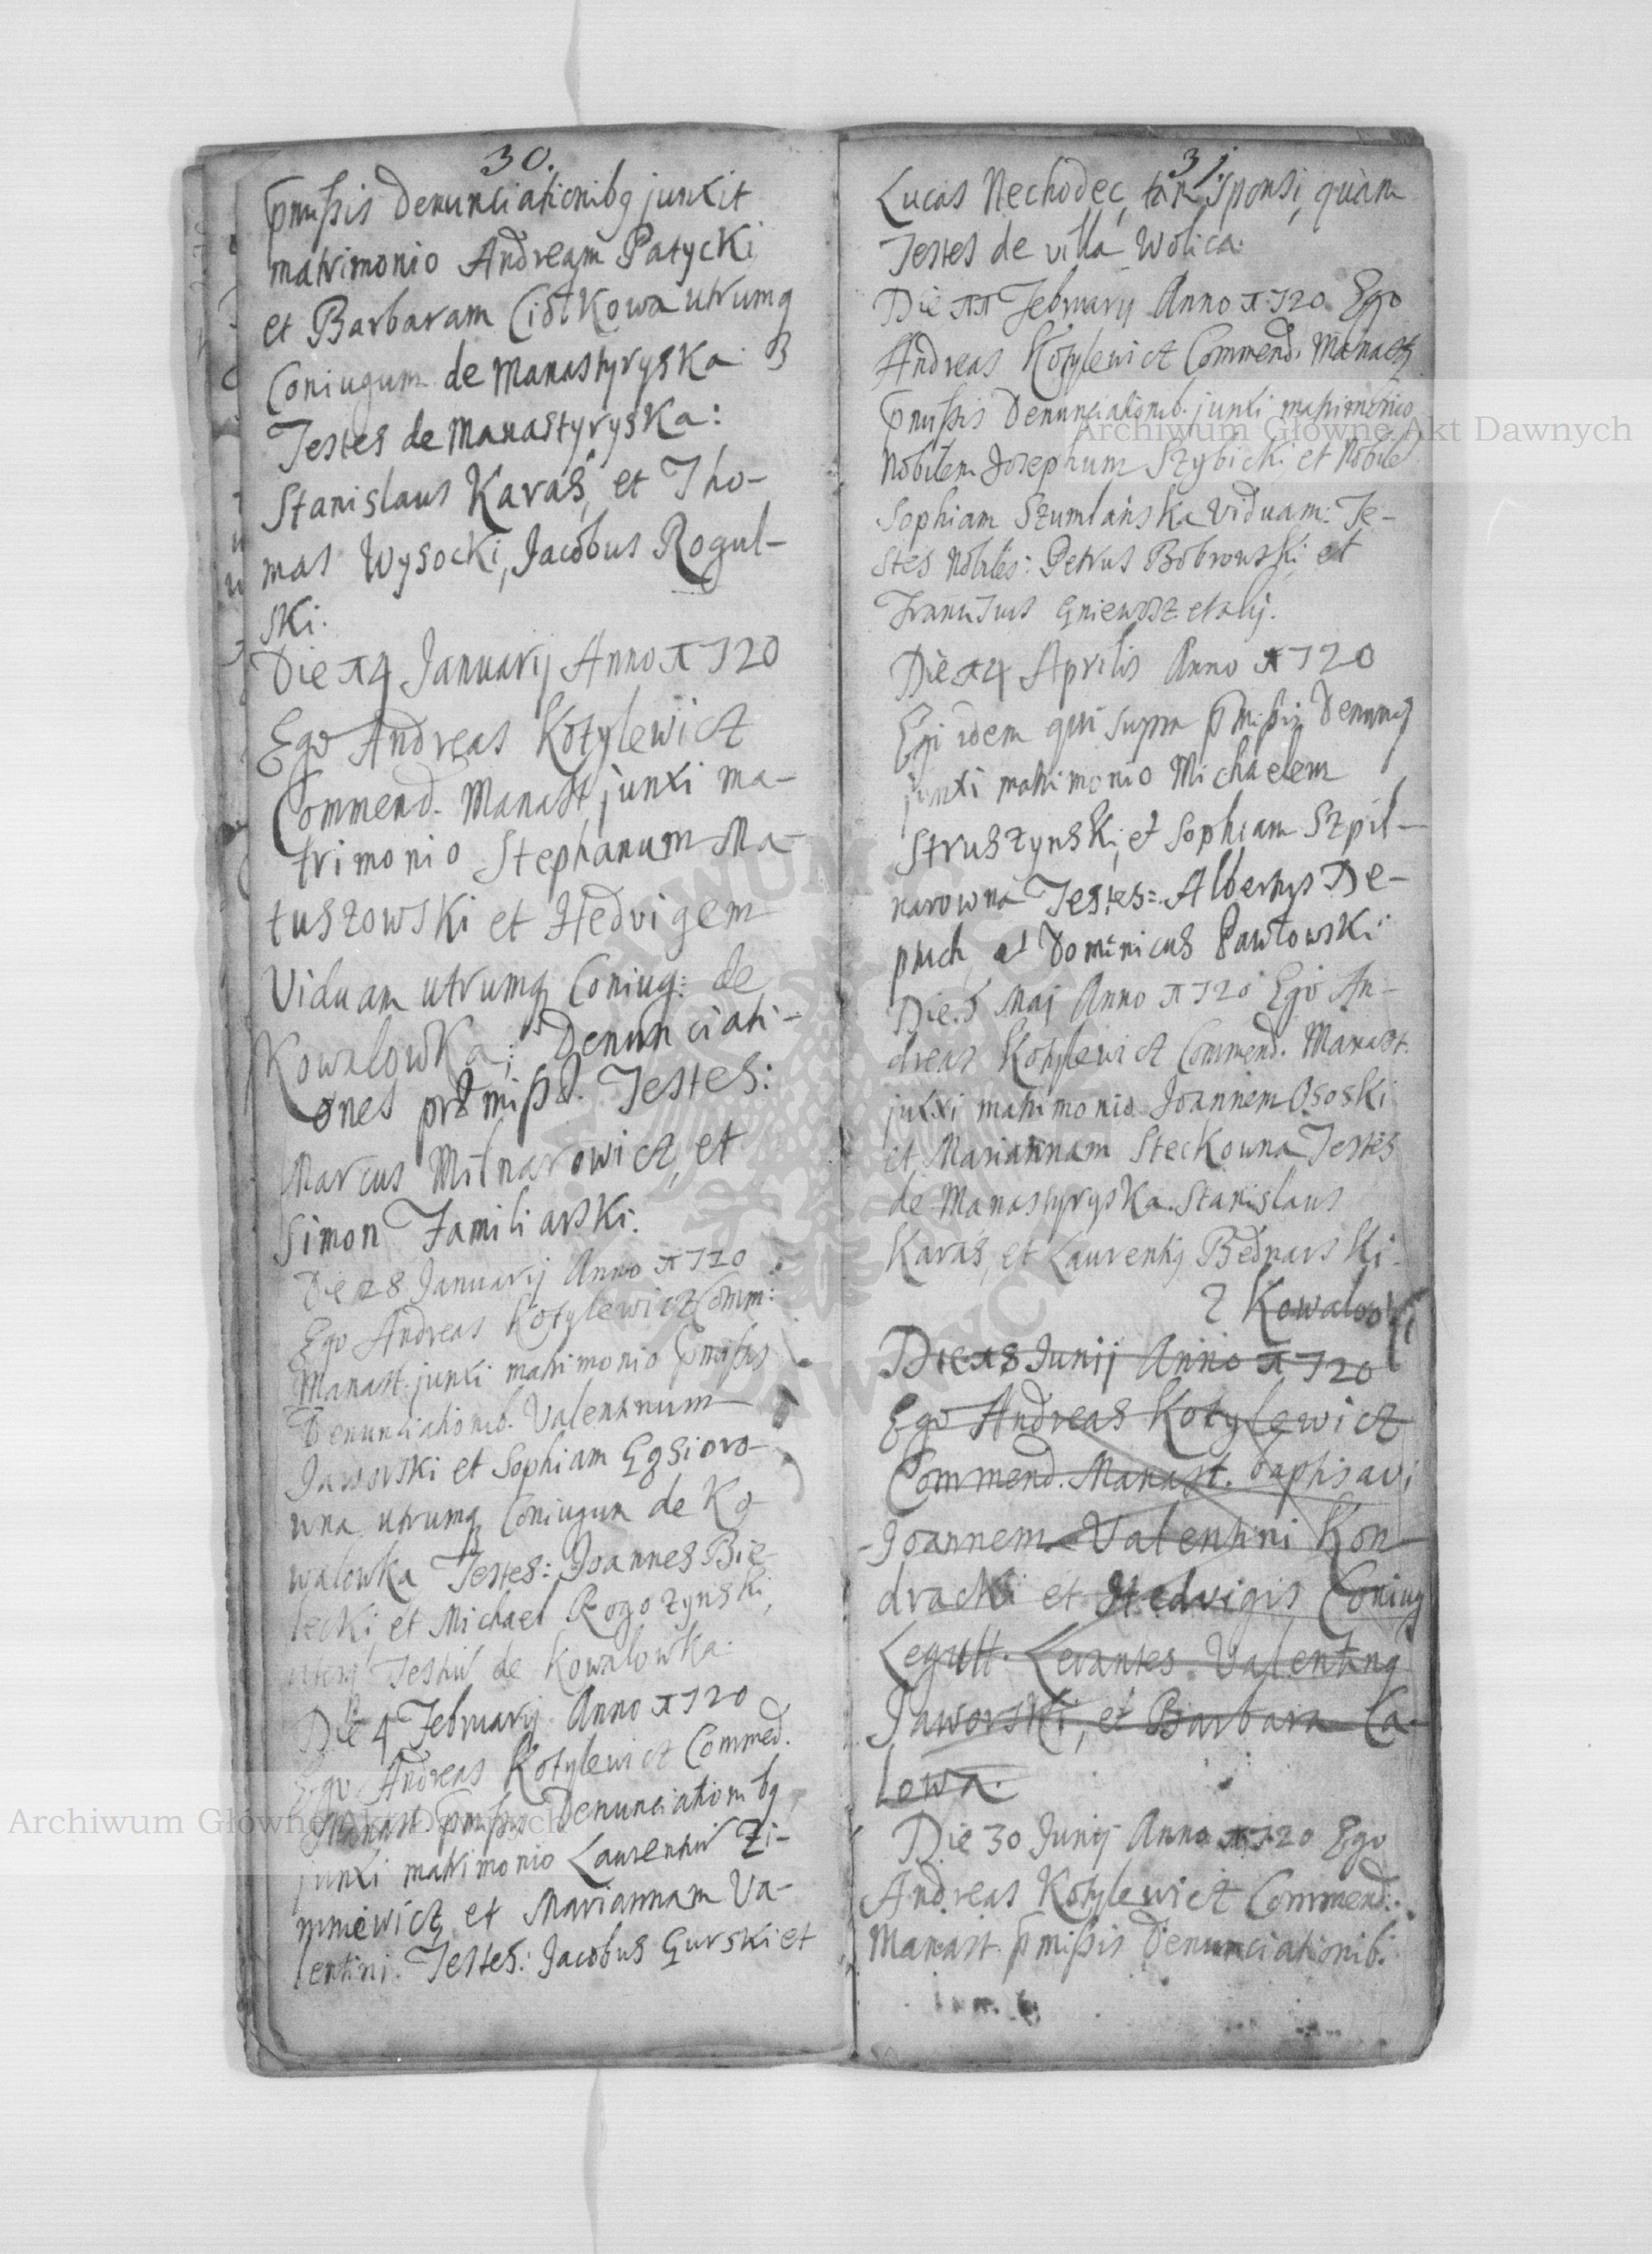 30.
pmissis Denunciationibq junxit
matrimonio Andream Patycki
et Barbaram Cistkowa utrumq
Coniugum de Manastyryska
Testes de Manastyryska:
Stanislaus Karaś, et Tho-
mas Wysocki, Jacobus Rogul-
ski.
Die 14 Januarij Anno 1720
Ego Andreas Kotylewicz
Commend. Manast. junxi ma-
trimonio Stephanum Ma-
tuszowski et Hedvigem
Viduam utrumq Coniug: de
Kowalowka; Denunciati-
ones præmissæ. Testes:
Marcus Milnarowicz, et
Simon Familiarski.
Die 28 Januarij Anno 1720
Ego Andreas Kotylewicz Comm:
Manast. junxi matrimonio pmissis
Denunciationib. Valentinum
Jaworski et Sophiam Gąsioro-
wna utrumq Coniugum de Ko-
walowka Testes: Joannes Bie-
lecki, et Michael Rogozynski,
Testiu de Kowalowka.
Die 4 Februarij Anno 1720
Ego Andreas Kotylewicz Commed.
Manast. pmissis Denunciationibq
junxi matrimonio Laurentiu Zi-
mniewicz, et Mariannam Va-
lentini. Testes: Jacobus Gurski et
31.
Lucas Nechodec, tam Sponsi, quàm
Testes de villa Wolica.
Die 11 Februarij Anno 1720. Ego
Andreas Kotylewicz Commend. Manast.
pmissis Denunciationib. junxi matrimonio
Nobilem Josephum Szybicki et Nobile
Sophiam Szumlańska Viduam: Te-
stes Nobiles: Petrus Bobrowski et
Franciscus Gniewosz et alij.
Die 14 Aprilis Anno 1720
Ego idem qui supra pmissis Denunc
junxi matrimonio Michaelem
Struszynski, et Sophiam Szpil-
narowna Testes: Albertus De-
puch et Dominicus Pawłowski.
Die 5 Maj Anno 1720 Ego An-
dreas Kotylewicz Commend. Manast.
juxxi matrimonio Joannem Ososki
et Mariannam Steckowna Testes
de Manastyryska. Stanislaus
Karaś, et Laurentij Bednarski.
z Kowalowki
Die 18 Junij Anno 1720
Ego Andreas Kotylewicz
Commend. Manast. baptisavi
Joannem Valentini Kon-
dracki et Hedvigis Coniug
Legitt. Levantes Valentinq
Jaworski, et Barbara Ca-
lowa.
Die 30 Junij Anno 1720 Ego
Andreas Kotylewicz Commend.
Manast. pmissis Denunciationib.
Archiwum Główne Akt Dawnych
Archiwum Główne Akt Dawnych